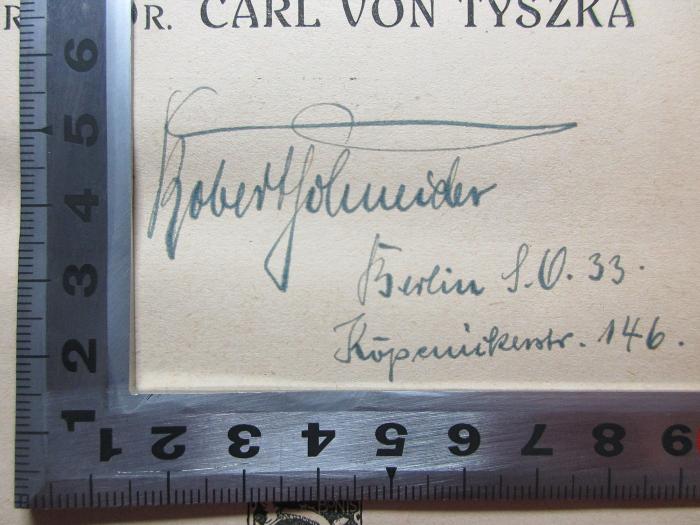 DR. CARL VON TYSZKA
Robert Schneider
Berlin S.O. 33.
Köpenickerstr. 146.
6
5
4
3
2
1
1 2 3 4 5 6 7 8 9